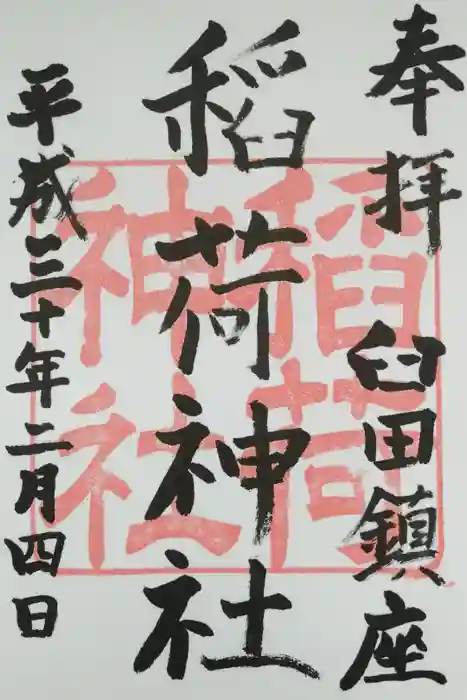 奉拝 臼田鎮座
稲荷神社
平成三十年二月四日
稲荷
神社